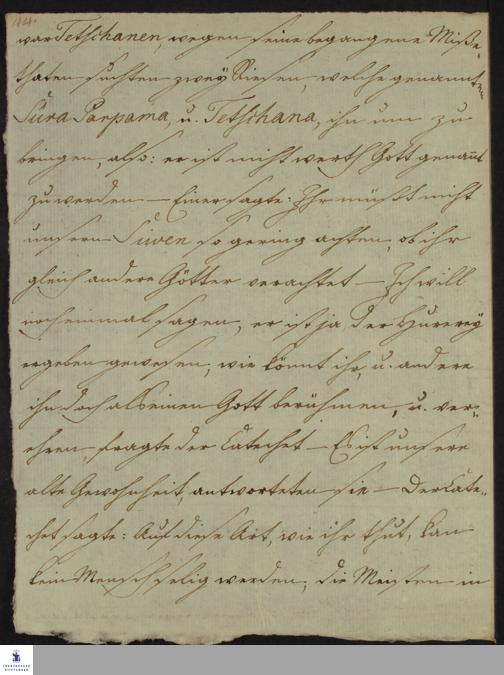 war Tetschanen, wegen seine begangene Miße-
thaten suchten zweÿ Riesen, welche genannt
Sūra Parpama, u. Tetschana, ihn um zu
bringen, also: er ist nicht werth Gott genant
zu werden — Einer sagte: Ihr müßt nicht
unsern Siwen so gering achten, ob ihr
gleich andere Götter verachtet — Ich will
noch einmal sagen, er ist ja der Hurereÿ
ergeben gewesen, wie könnt ihr, u. andere
ihn doch als einen Gott berühmen, u. ver-
ehren, fragte der Catechet — Es ist unsere
alte Gewohnheit, antworteten sie — Der Cate-
chet sagte: Auf diese Art, wie ihr thut, kan
kein Mensch selig werden, die Meisten in
FRANCKESCHE
STIFTUNGEN